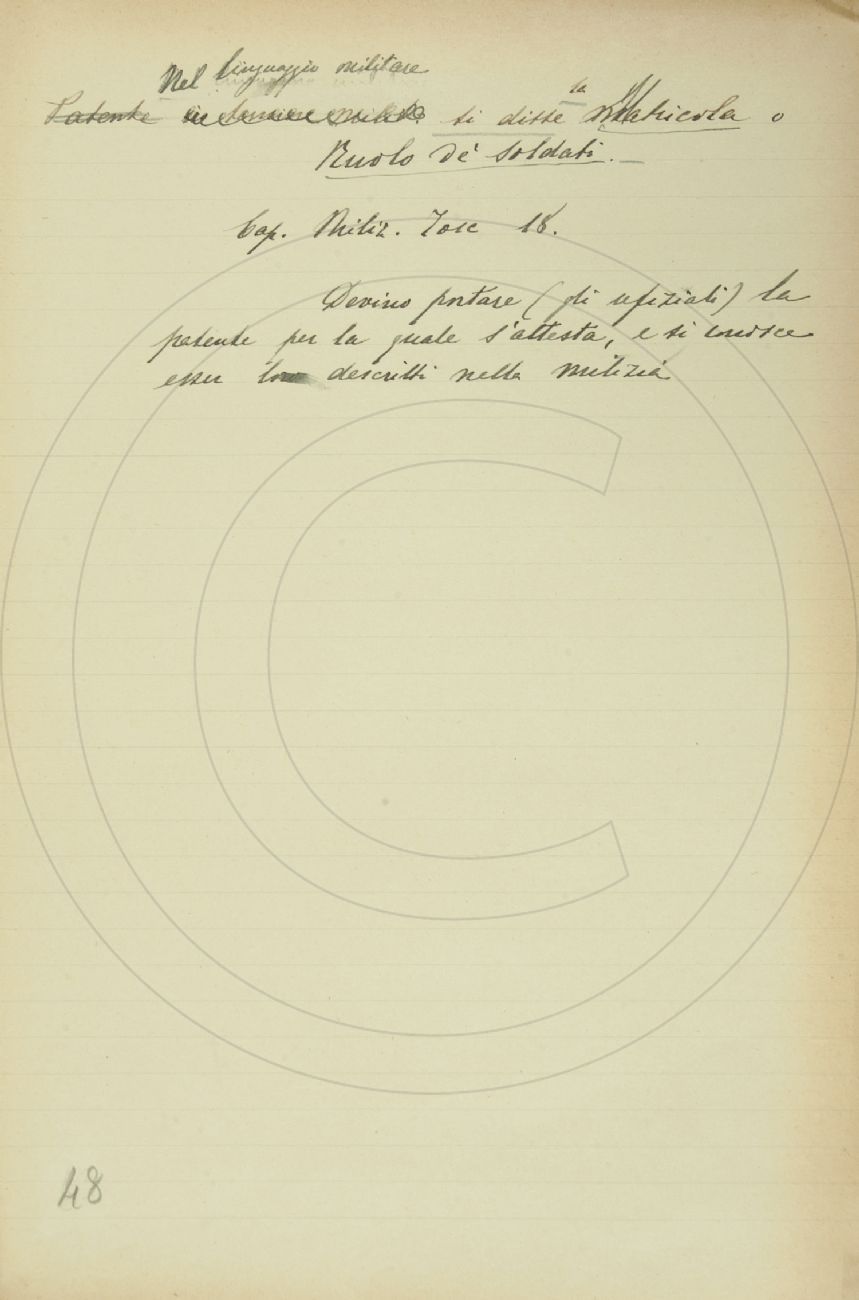 Nel linguaggio militare
Patente in termine milit. si disse la Matricola o
Ruolo de' soldati.
Cap. Miliz. Tosc 18.
Devino portare (gli ufiziali) la
patente per la quale s'attesta, e si conosce
esser loro descritti nella milizia
48